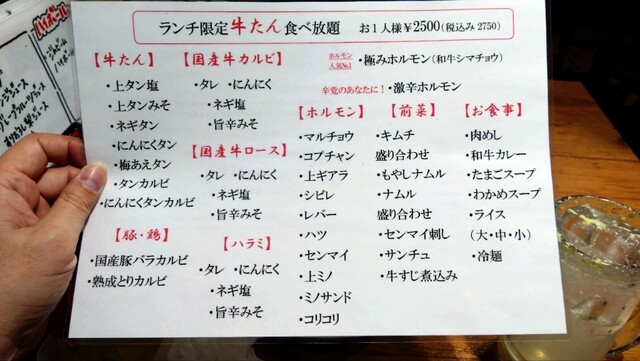 ランチ限定 牛たん 食べ放題 お1人様¥2500(税込み2750)
【牛たん】
・上タン塩
・上タンみそ
・ネギタン
・にんにくタン
・梅あえタン
・タンカルビ
・にんにくタンカルビ
【豚・鶏】
・国産豚バラカルビ
・熟成とりカルビ
【国産牛カルビ】
・タレ ・にんにく
・ネギ塩
・旨辛みそ
【国産牛ロース】
・タレ ・にんにく
・ネギ塩
・旨辛みそ
【ハラミ】
・タレ ・にんにく
・ネギ塩
・旨辛みそ
ホルモン
人気No.1
・極みホルモン(和牛シマチョウ)
辛党のあなたに!・激辛ホルモン
【ホルモン】
・マルチョウ
・コプチャン
・上ギアラ
・シビレ
・レバー
・ハツ
・センマイ
・上ミノ
・ミノサンド
・コリコリ
【前菜】
・キムチ
盛り合わせ
・もやしナムル
・ナムル
盛り合わせ
・センマイ刺し
・サンチュ
・牛すじ煮込み
【お食事】
・肉めし
・和牛カレー
・たまごスープ
・わかめスープ
・ライス
(大・中・小)
・冷麺
ハイボール